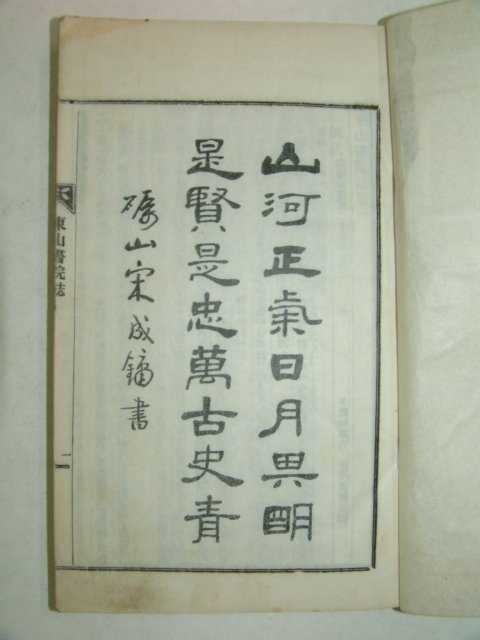 山河正氣日月昺明
是賢是忠萬古史青
礪山宋成鏞書
東山書院誌
二